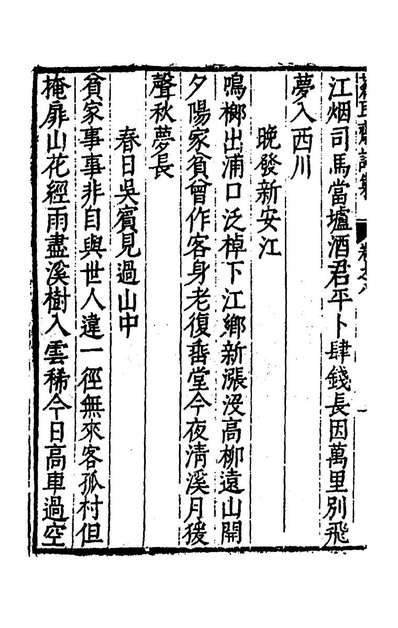 江烟司馬當壚酒君平卜肆錢長因萬里別飛
夢入西川
晚發新安江
鳴榔出浦口泛棹下江鄉新漲沒高柳遠山開
夕陽家貧曾作客身老復垂堂今夜清溪月猨
聲秋夢長
春日吳賓見過山中
貧家事事非自與世人違一徑無來客孤村但
掩扉山花經雨盡溪樹入雲稀今日高車過空